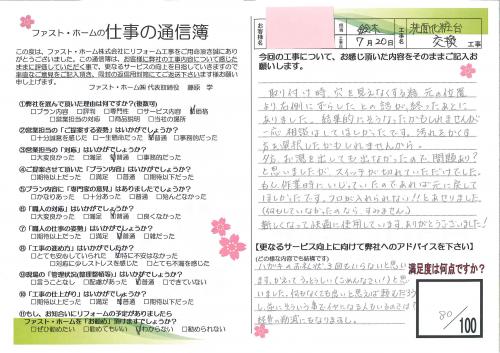 ファスト・ホームの仕事の通信簿
この度は、ファスト・ホーム株式会社にリフォーム工事をご用命頂き誠にあり
がとうございました。この通信簿は、お客様に弊社の工事内容について感じた
ままに評価していただく事で、更なるサービスの向上を目指していきますので
率直なご意見をご記入頂き、同封の返信用封筒にてご送付下さいます様お願い
申し上げます。
ファスト・ホーム㈱ 代表取締役 藤原 学
①弊社を選んで頂いた理由は何ですか？(複数可)
□プラン内容 □評判 □サービス内容 □価格
□営業担当の対応 □商品説明 □当社の場所
②営業担当の「ご提案する姿勢」はいかがでしょうか？
□十分誠意を感じた □一生懸命だった □普通 □事務的だった
③営業担当の「対応」はいかがでしょうか？
□大変良かった □満足 □普通 □事務的だった
④ご提案させて頂いた「プラン内容」はいかがでしょうか？
□期待以上だった □満足 □普通 □期待以下だった
⑤プラン内容に「専門家の意見」はありましたでしょうか？
□かなりあった □十分あった □普通 □殆んどなかった
⑥「職人の対応」はいかがでしょうか？
□大変良かった □満足 □普通 □良くなかった
⑦「職人の仕事の姿勢」はいかがでしょうか？
□期待以上だった □満足 □普通 □雑だった
⑧「工事の進め方」はいかがでしょうか？
□とても安心していられた □特に不安はなかった
□対応に少しストレスを感じた □とても不満を感じた
⑨現場の「管理状況(整理整頓等)」はいかがでしょうか？
□大変良かった □配慮していた □普通 □できていない
⑩「工事の仕上がり」はいかがでしょうか？
□期待以上だった □満足 □普通 □期待以下だった
⑪もし、お知合いにリフォームの予定がありましたら
ファスト・ホームを「お勧め」頂けますでしょうか？
□ぜひ勧めたい □勧めてもいい □わからない □勧められない
お客様名
担当 鈴木
完工 7月20日
工事名 洗面化粧台
交換 工事
今回の工事について、お感じ頂いた内容をそのままご記入お
願いします。
取り付け時、穴を見えなくする為 元の位置
より右側にずらしたとの話が、終ったあとに
ありました。結果的にそうなったかもしれませんが
一応 相談はしてほしかったです。汚れをかくす
方を選択したかもしれませんから。
夕方、お湯を出しても出なかったので、問題あり？
と思いましたが、スイッチが切れていただけでした。
もし、作業的にいじっていたのであれば元に戻して
ほしかったです。フロが入れられない！！とあせりました。
(何もしていなかったのなら、すみません)
新しくなって快適に使用しています。ありがとうございました！
【更なるサービス向上に向けて弊社へのアドバイスを下さい】
(どの様な内容でも結構です)
いました。
経費の削減にもなりますし。
満足度は何点ですか？
80/100